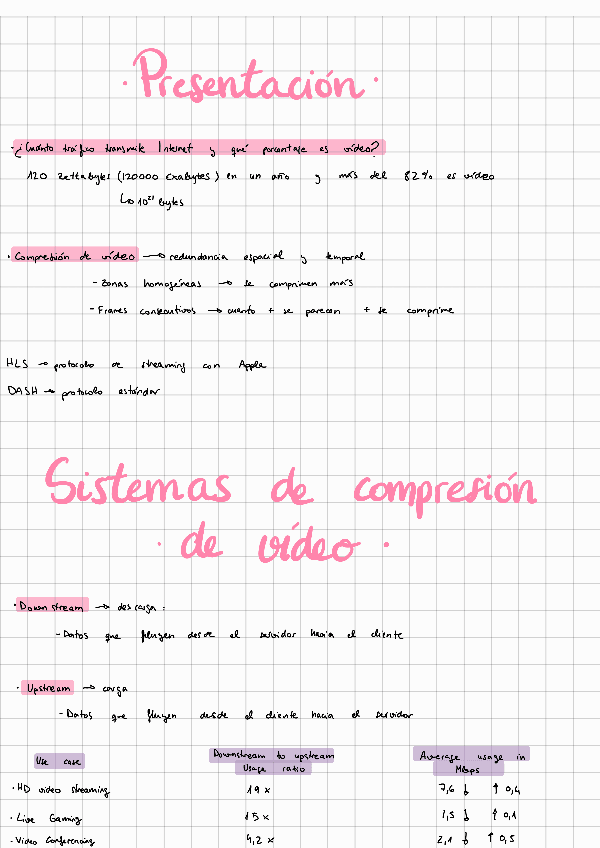 · Presentación ·
· ¿Cuánto tráfico transmite Internet y qué porcentaje es vídeo?
120 zettabytes (120000 exabytes) en un año y más del 82% es vídeo
↳ 10²¹ bytes
· Compresión de vídeo → redundancia espacial y temporal
- Zonas homogéneas → se comprimen más
- Frames consecutivos → cuanto + se parecen + se comprime
HLS → protocolo de streaming con Apple
DASH → protocolo estándar
Sistemas de compresión
· de vídeo ·
· Downstream → descarga:
- Datos que fluyen desde el servidor hacia el cliente
· Upstream → carga
- Datos que fluyen desde el cliente hacia el servidor
Use case Downstream to upstream Usage ratio Average usage in Mbps
· HD video streaming 19 x 7,6 ↓ ↑ 0,4
· Live Gaming 15 x 1,5 ↓ ↑ 0,1
· Video Conferencing 4,2 x 2,1 ↓ ↑ 0,5